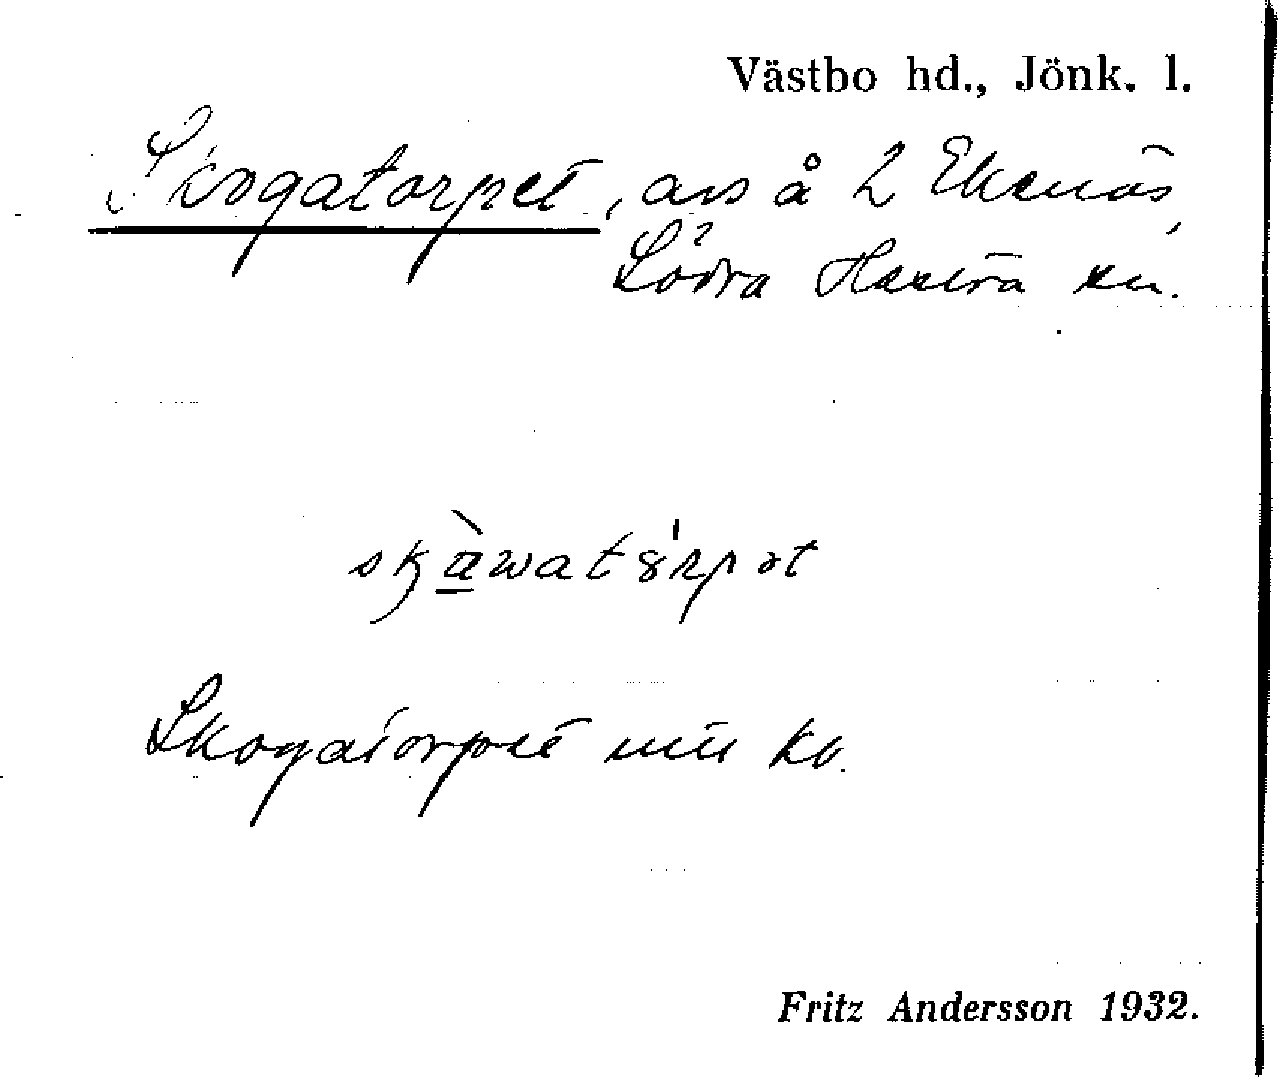 Västbo hd., Jönk. l.
Skogatorpet, avs å 2 Ekenäs,
Södra Hestra sn.
Skogatorpet mtl kb.
Fritz Andersson 1932.